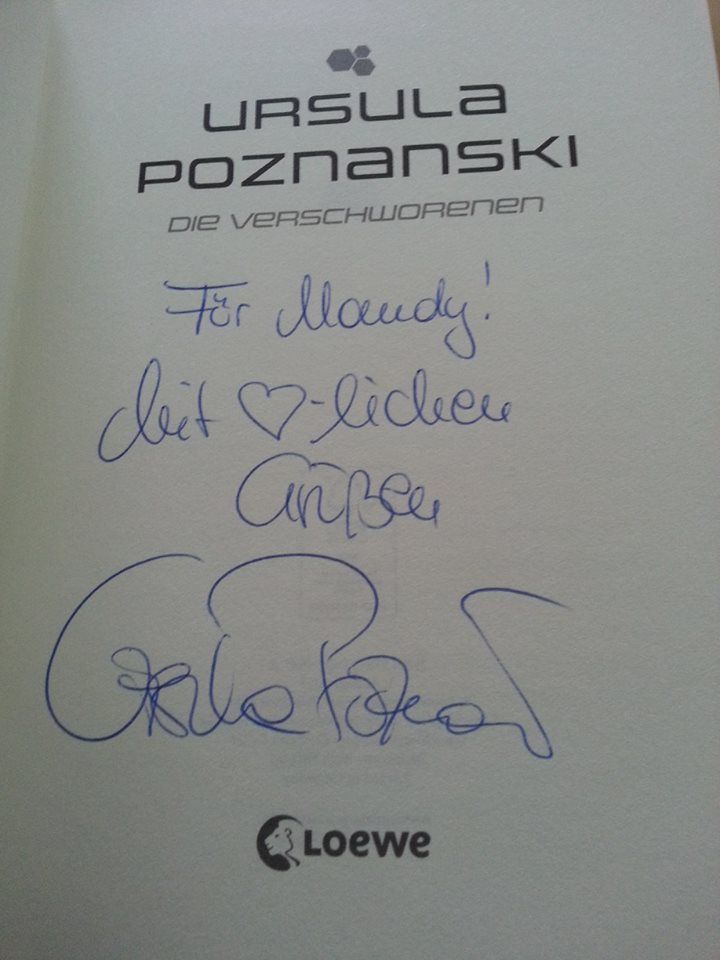 URSULA
POZNANSKI
DIE VERSCHWORENEN
Für Mandy!
Mit ♡-lichen
Grüßen
Ursula Poznanski
Loewe